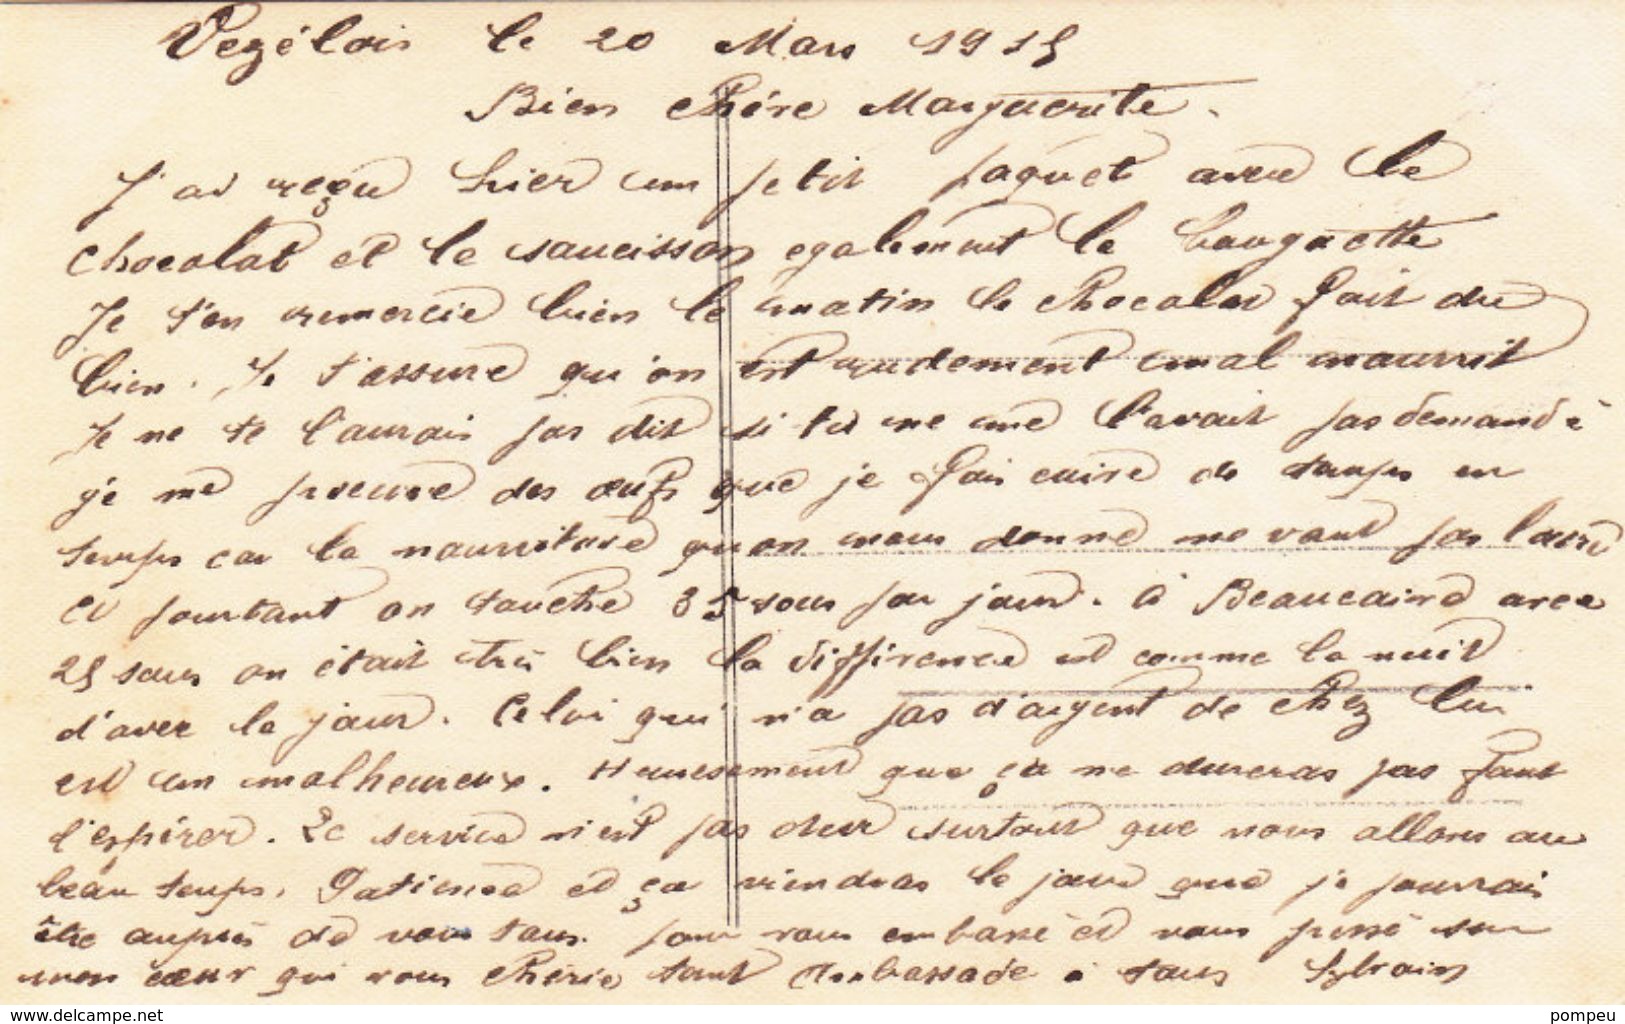 Vezélois le 20 Mars 1915
Bien chère Marguerite.
J'ai reçu hier un petit paquet avec le
chocolat et le saucisson egalement la languette
Je t'en remercie bien le matin le chocolat fait du
bien. Je t'assure qu'on est rudement mal nourrit
Je ne te l'aurais pas dit si tu ne me l'avait pas demandé
je me procure des œufs que je fais cuire de temps en
temps car la nourriture qu'on nous donne ne vaut pas
et pourtant on touche 35 sous par jour. à Beaucaire avec
25 sous on était très bien la différence est comme la nuit
d'avec le jour. Celui qui n'a pas d'argent de chez lui
est un malheureux. Heureusement que ça ne dureras pas faut
l'espérer. Le service n'est pas dur surtout que nous allons au
beau temps. Patience et ça viendras le jour que je pourrai
être auprès de vous tous. pour vous embrassé et vous pressé sur
mon cœur qui vous chérie tant Embrassade à tous Sylvain
www.delcampe.net
pompeu